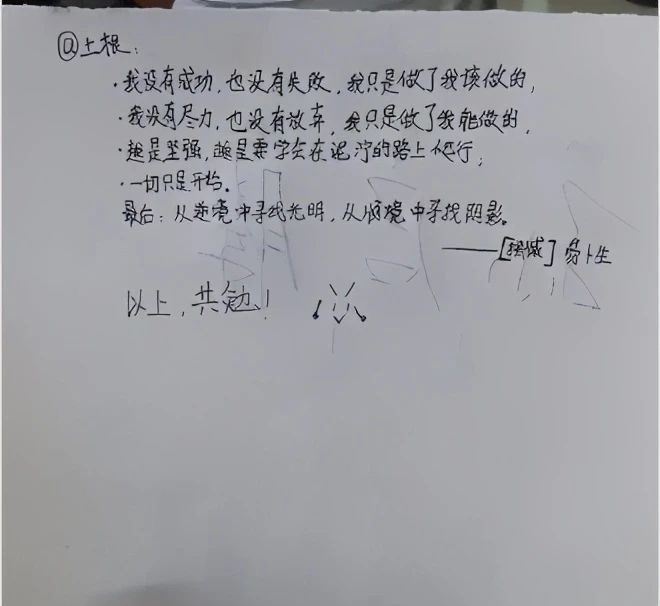 @土根:
·我没有成功,也没有失败,我只是做了我该做的,
·我没有尽力,也没有放弃,我只是做了我能做的,
·越是坚强,越是要学会在泥泞的路上爬行;
·一切只是开始。
最后:从逆境中寻找光明,从顺境中寻找阴影。
——[] 易卜生
以上,共勉!